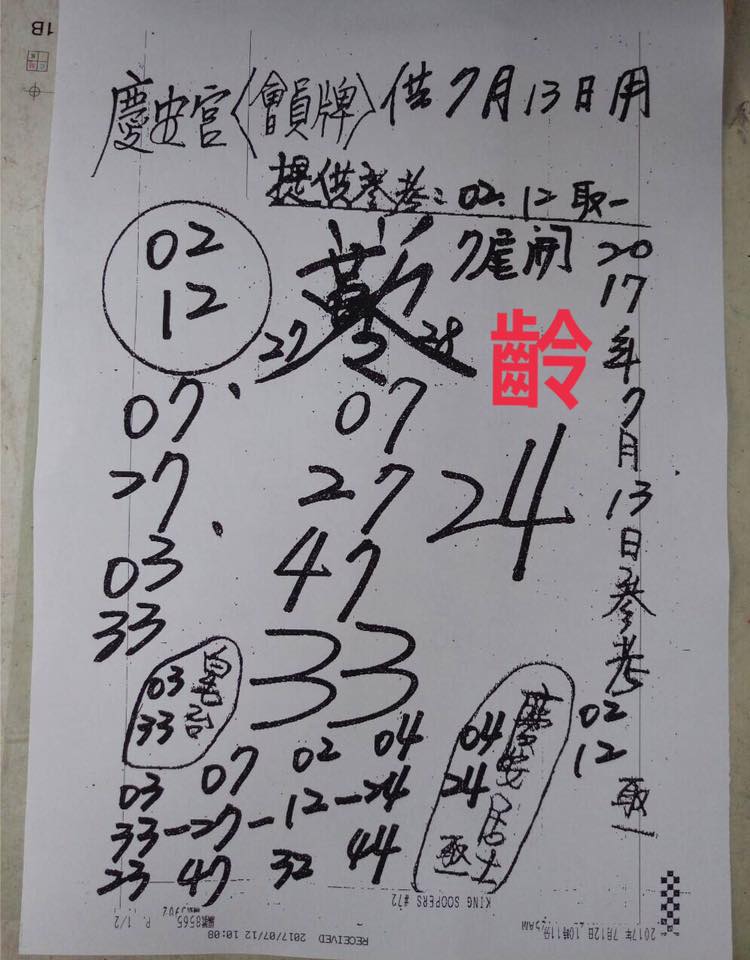 1B
慶安宮〈會員牌〉供7月13日用
提供參考:02.12取一
7尾開
02
12
27 2 24
齡
07
27
03
33
07
27
47
33
24
2017年7月13日參考
02
12
取一
03
33
慶安居士
04
24
取一
03 07 02 04
33-27-12-24
23 47 32 44
KING SOOPERS #72
8565 P. 1/2
RECEIVED 2017/07/12 10:08
2017年 7月12日 10時11分